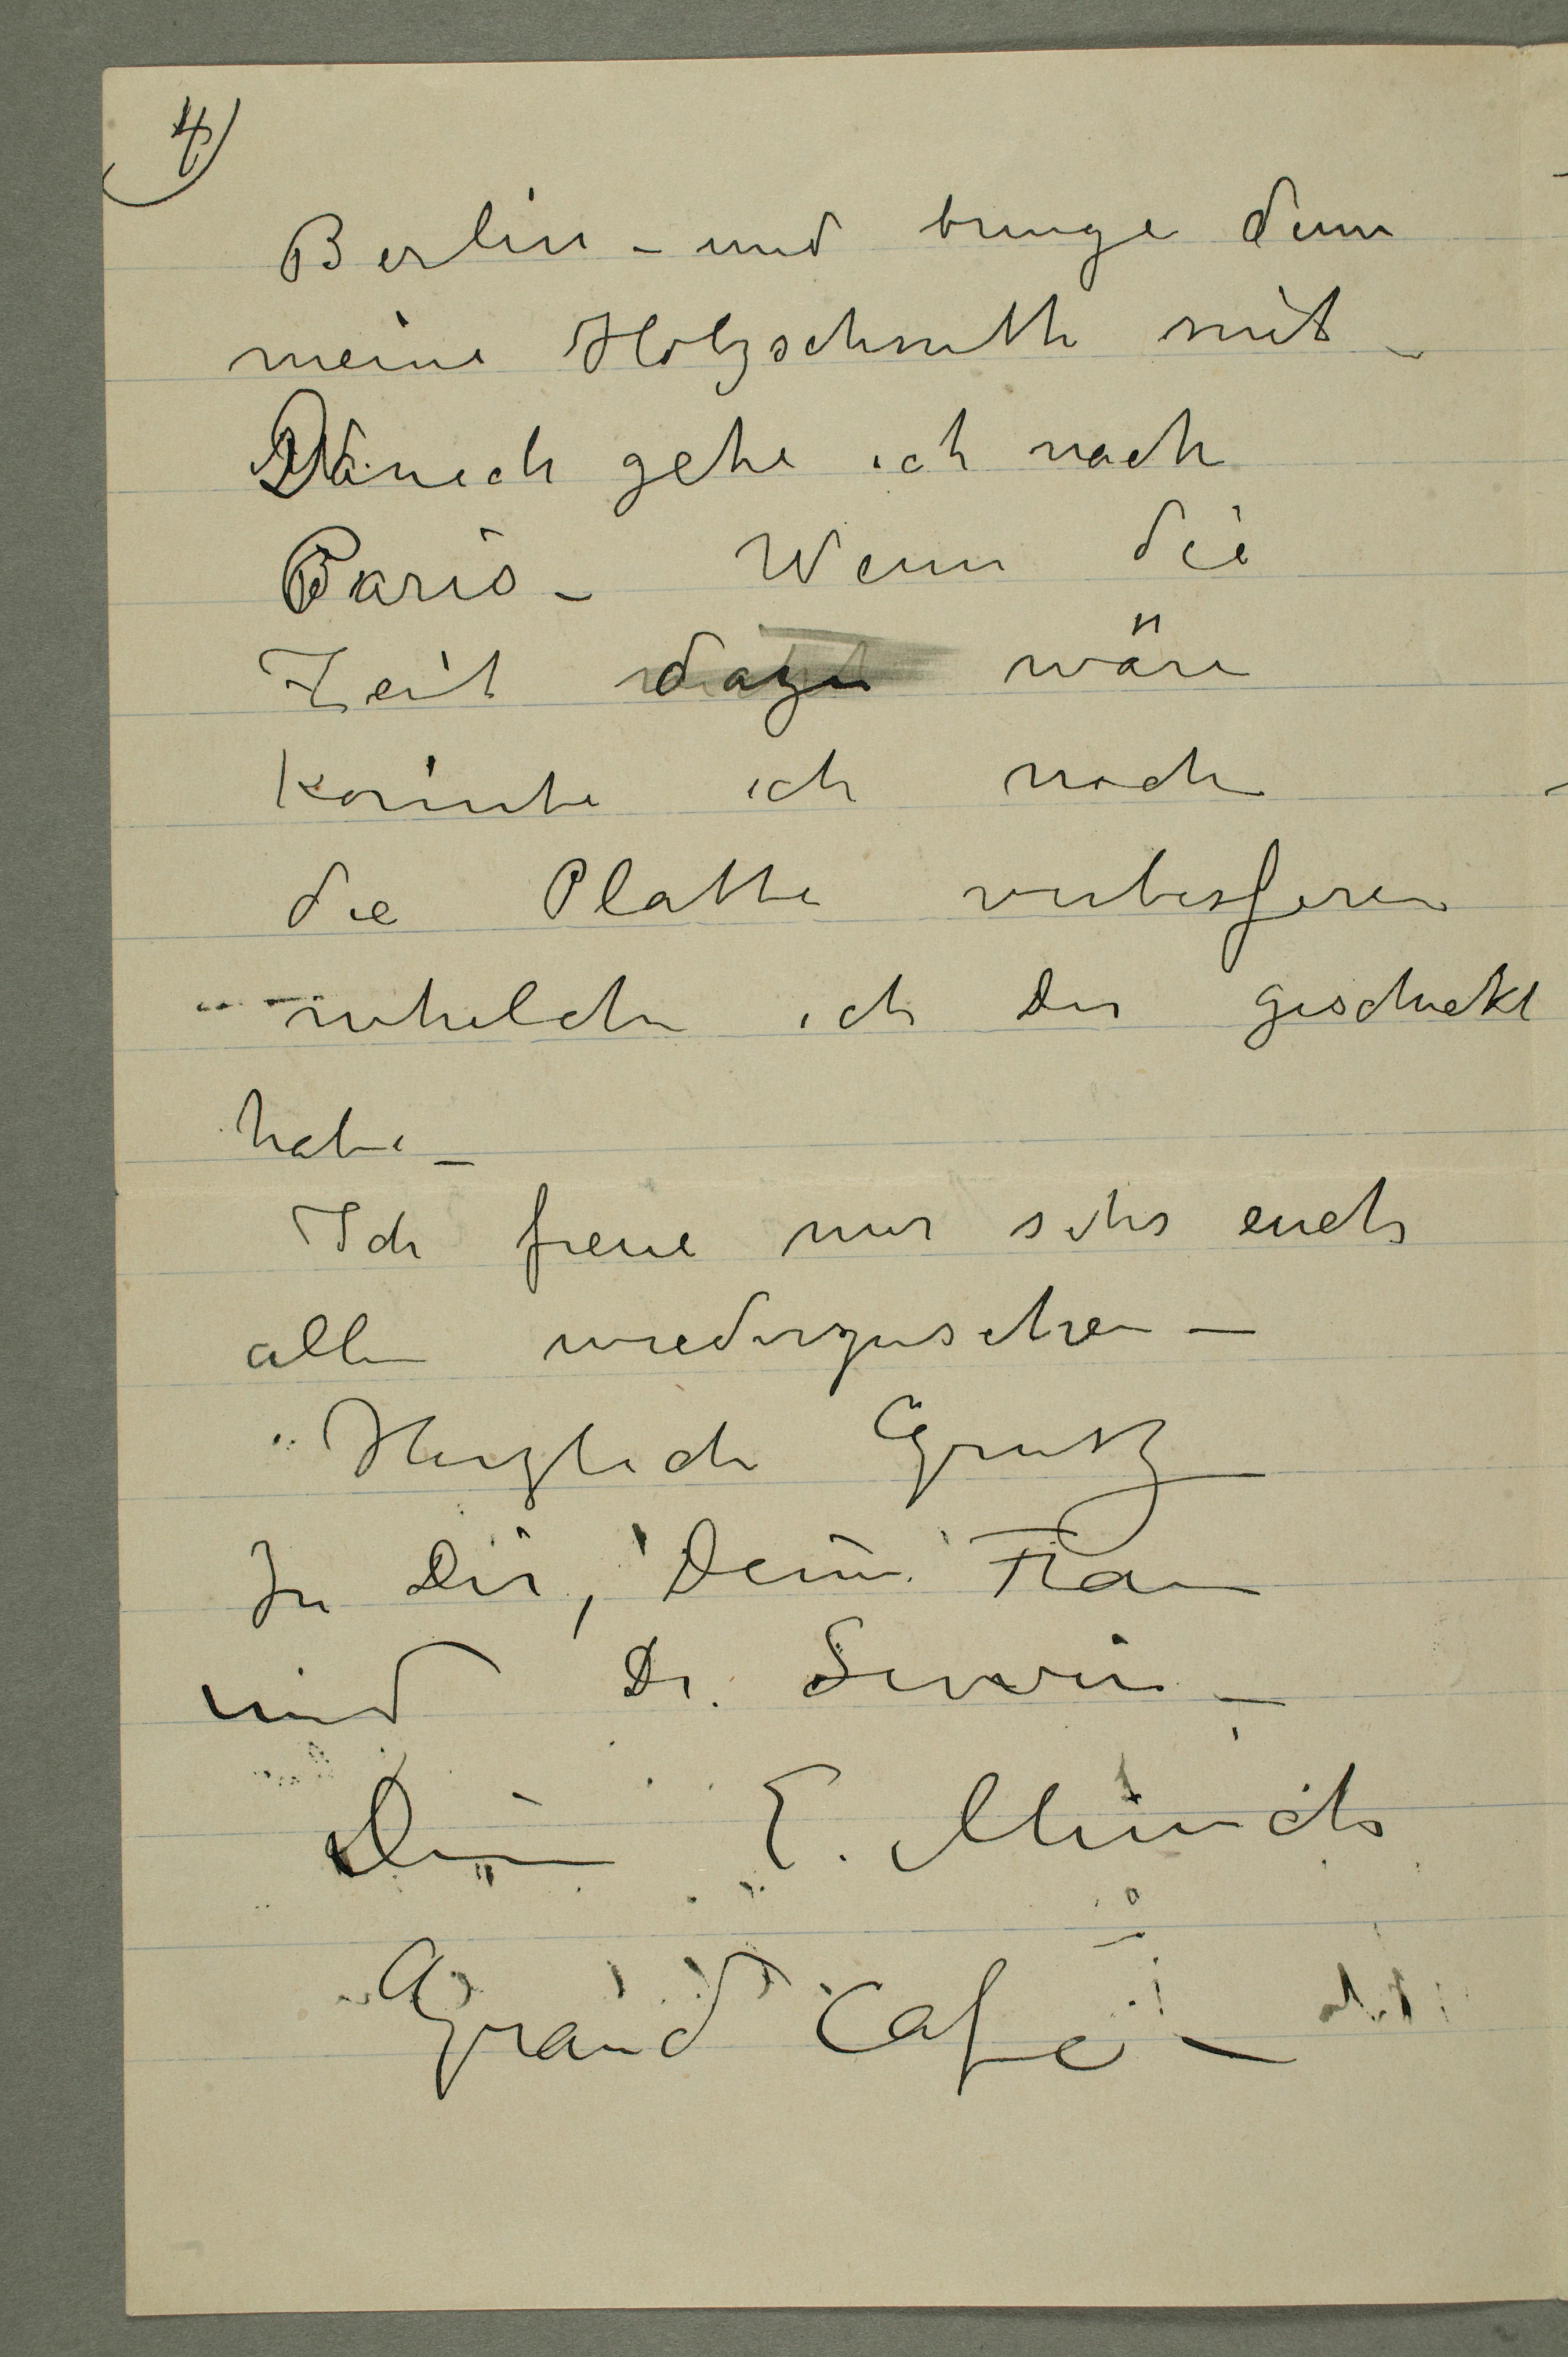 4)
Berlin – und bringe dann
meine Holzschnitte mit –
Danach gehe ich nach
Paris – Wenn die
Zeit dazu wäre
könnte ich noch
die Platte verbessern
whelche ich Dir geschickt
habe –
Ich freue mir sehr euch
alle wiederzusehen –
Herzlich Grusz
Zu Dir, Deine Frau
und Dr.
Dein E. Munch
Grand Café –